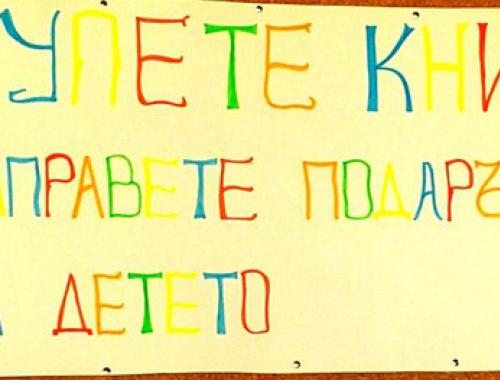 УПЕТЕ КНИ
АПРАВЕТЕ ПОДАРЪ
А ДЕТЕТО